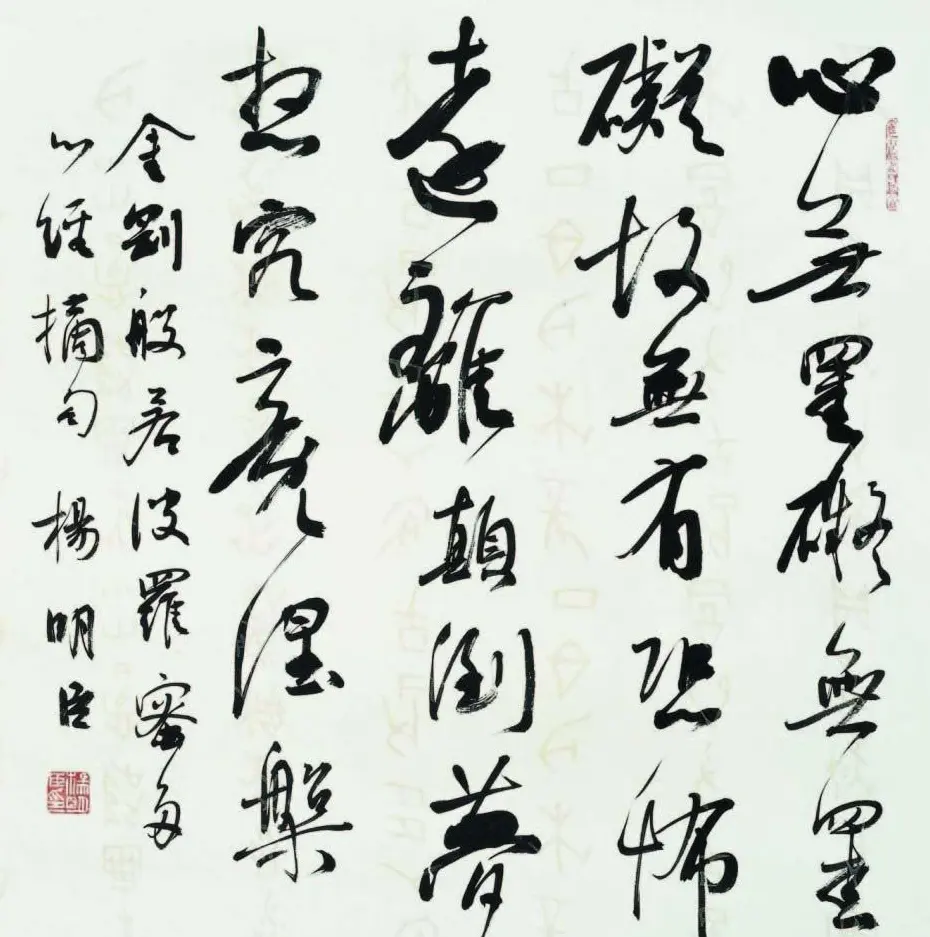 心無罣礙無罣
礙故無有恐怖
遠離顛倒夢
想究竟涅槃
金剛般若波羅蜜多
心經摘句 楊明臣